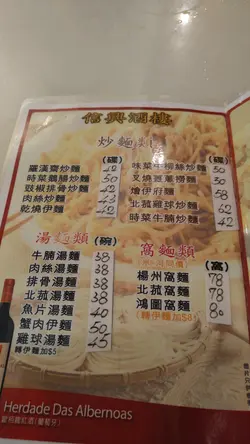 信興酒樓
炒麵類 (碟) (碟)
羅漢齋炒麵 42
時菜鵝腸炒麵 50
豉椒排骨炒麵 42
肉絲炒麵
乾燒伊麵 42
味菜牛柳絲炒麵 50
叉燒薑蔥撈麵 50
燴伊府麵
北菰雞球炒麵
時菜牛腩炒麵
湯麵類 (碗)
牛腩湯麵 38
肉絲湯麵 38
排骨湯麵 38
北菰湯麵 38
魚片湯麵 40
蟹肉伊麵 50
雞球湯麵 45
(轉伊麵加$5)
窩麵類 (窩)
楊州窩麵 78
北菰窩麵 78
鴻圖窩麵
(轉伊麵加$8)
Herdade Das Albernoas